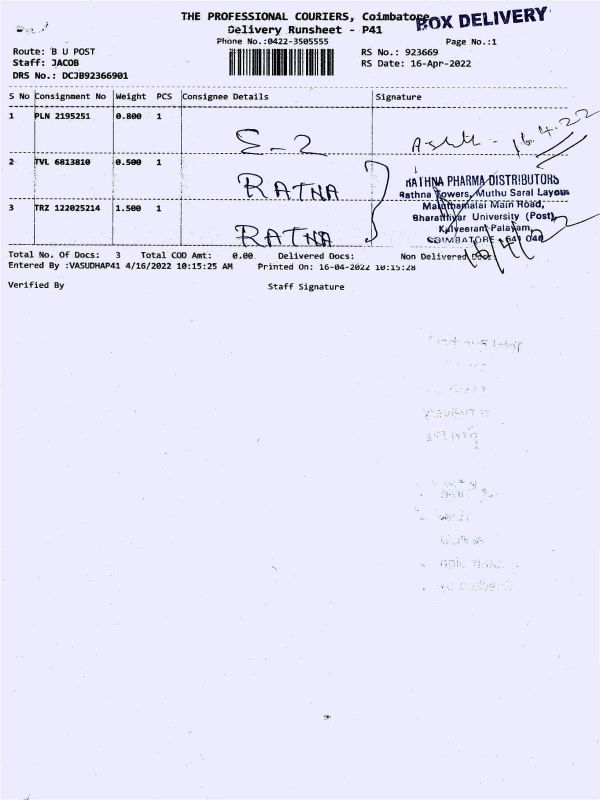 THE PROFESSIONAL COURIERS, Coimbatore
BOX DELIVERY
Delivery Runsheet - P41
Phone No.:0422-3505555
Page No.:1
Route: B U POST
RS No.: 923669
Staff: JACOB
RS Date: 16-Apr-2022
DRS No.: DCJB92366901
S No Consignment No Weight PCS Consignee Details Signature
1 PLN 2195251 0.800 1
Σ-2
16.4.22
2 TVL 6813810 0.500 1
RATNA
RATHNA PHARMA DISTRIBUTORS
Rathna Towers, Muthu Saral Layout
Maruthamalai Main Road,
3 TRZ 122025214 1.500 1
RATNA
Bharathiyar University (Post),
Kalveerampalayam,
COIMBATORE - 641 046
16/4/22
Total No. Of Docs: 3 Total COD Amt: 0.00 Delivered Docs: Non Delivered Docs:
Entered By :VASUDHAP41 4/16/2022 10:15:25 AM Printed On: 16-04-2022 10:15:28
Verified By Staff Signature